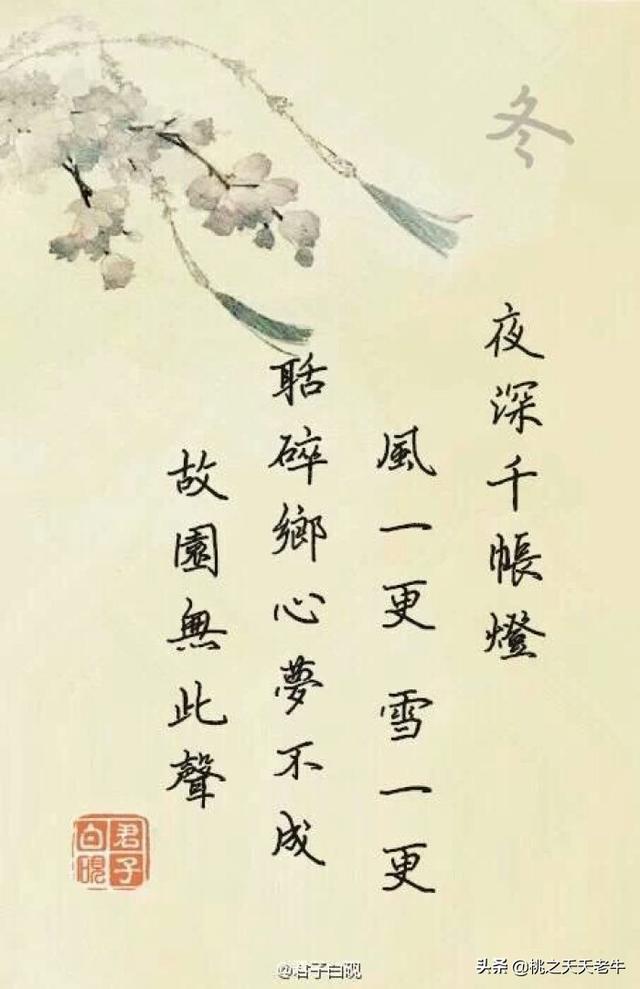 冬
夜深千帳燈
風一更 雪一更
聒碎鄉心夢不成
故園無此聲
君子
白
@君子白
头条 @桃之夭夭老牛